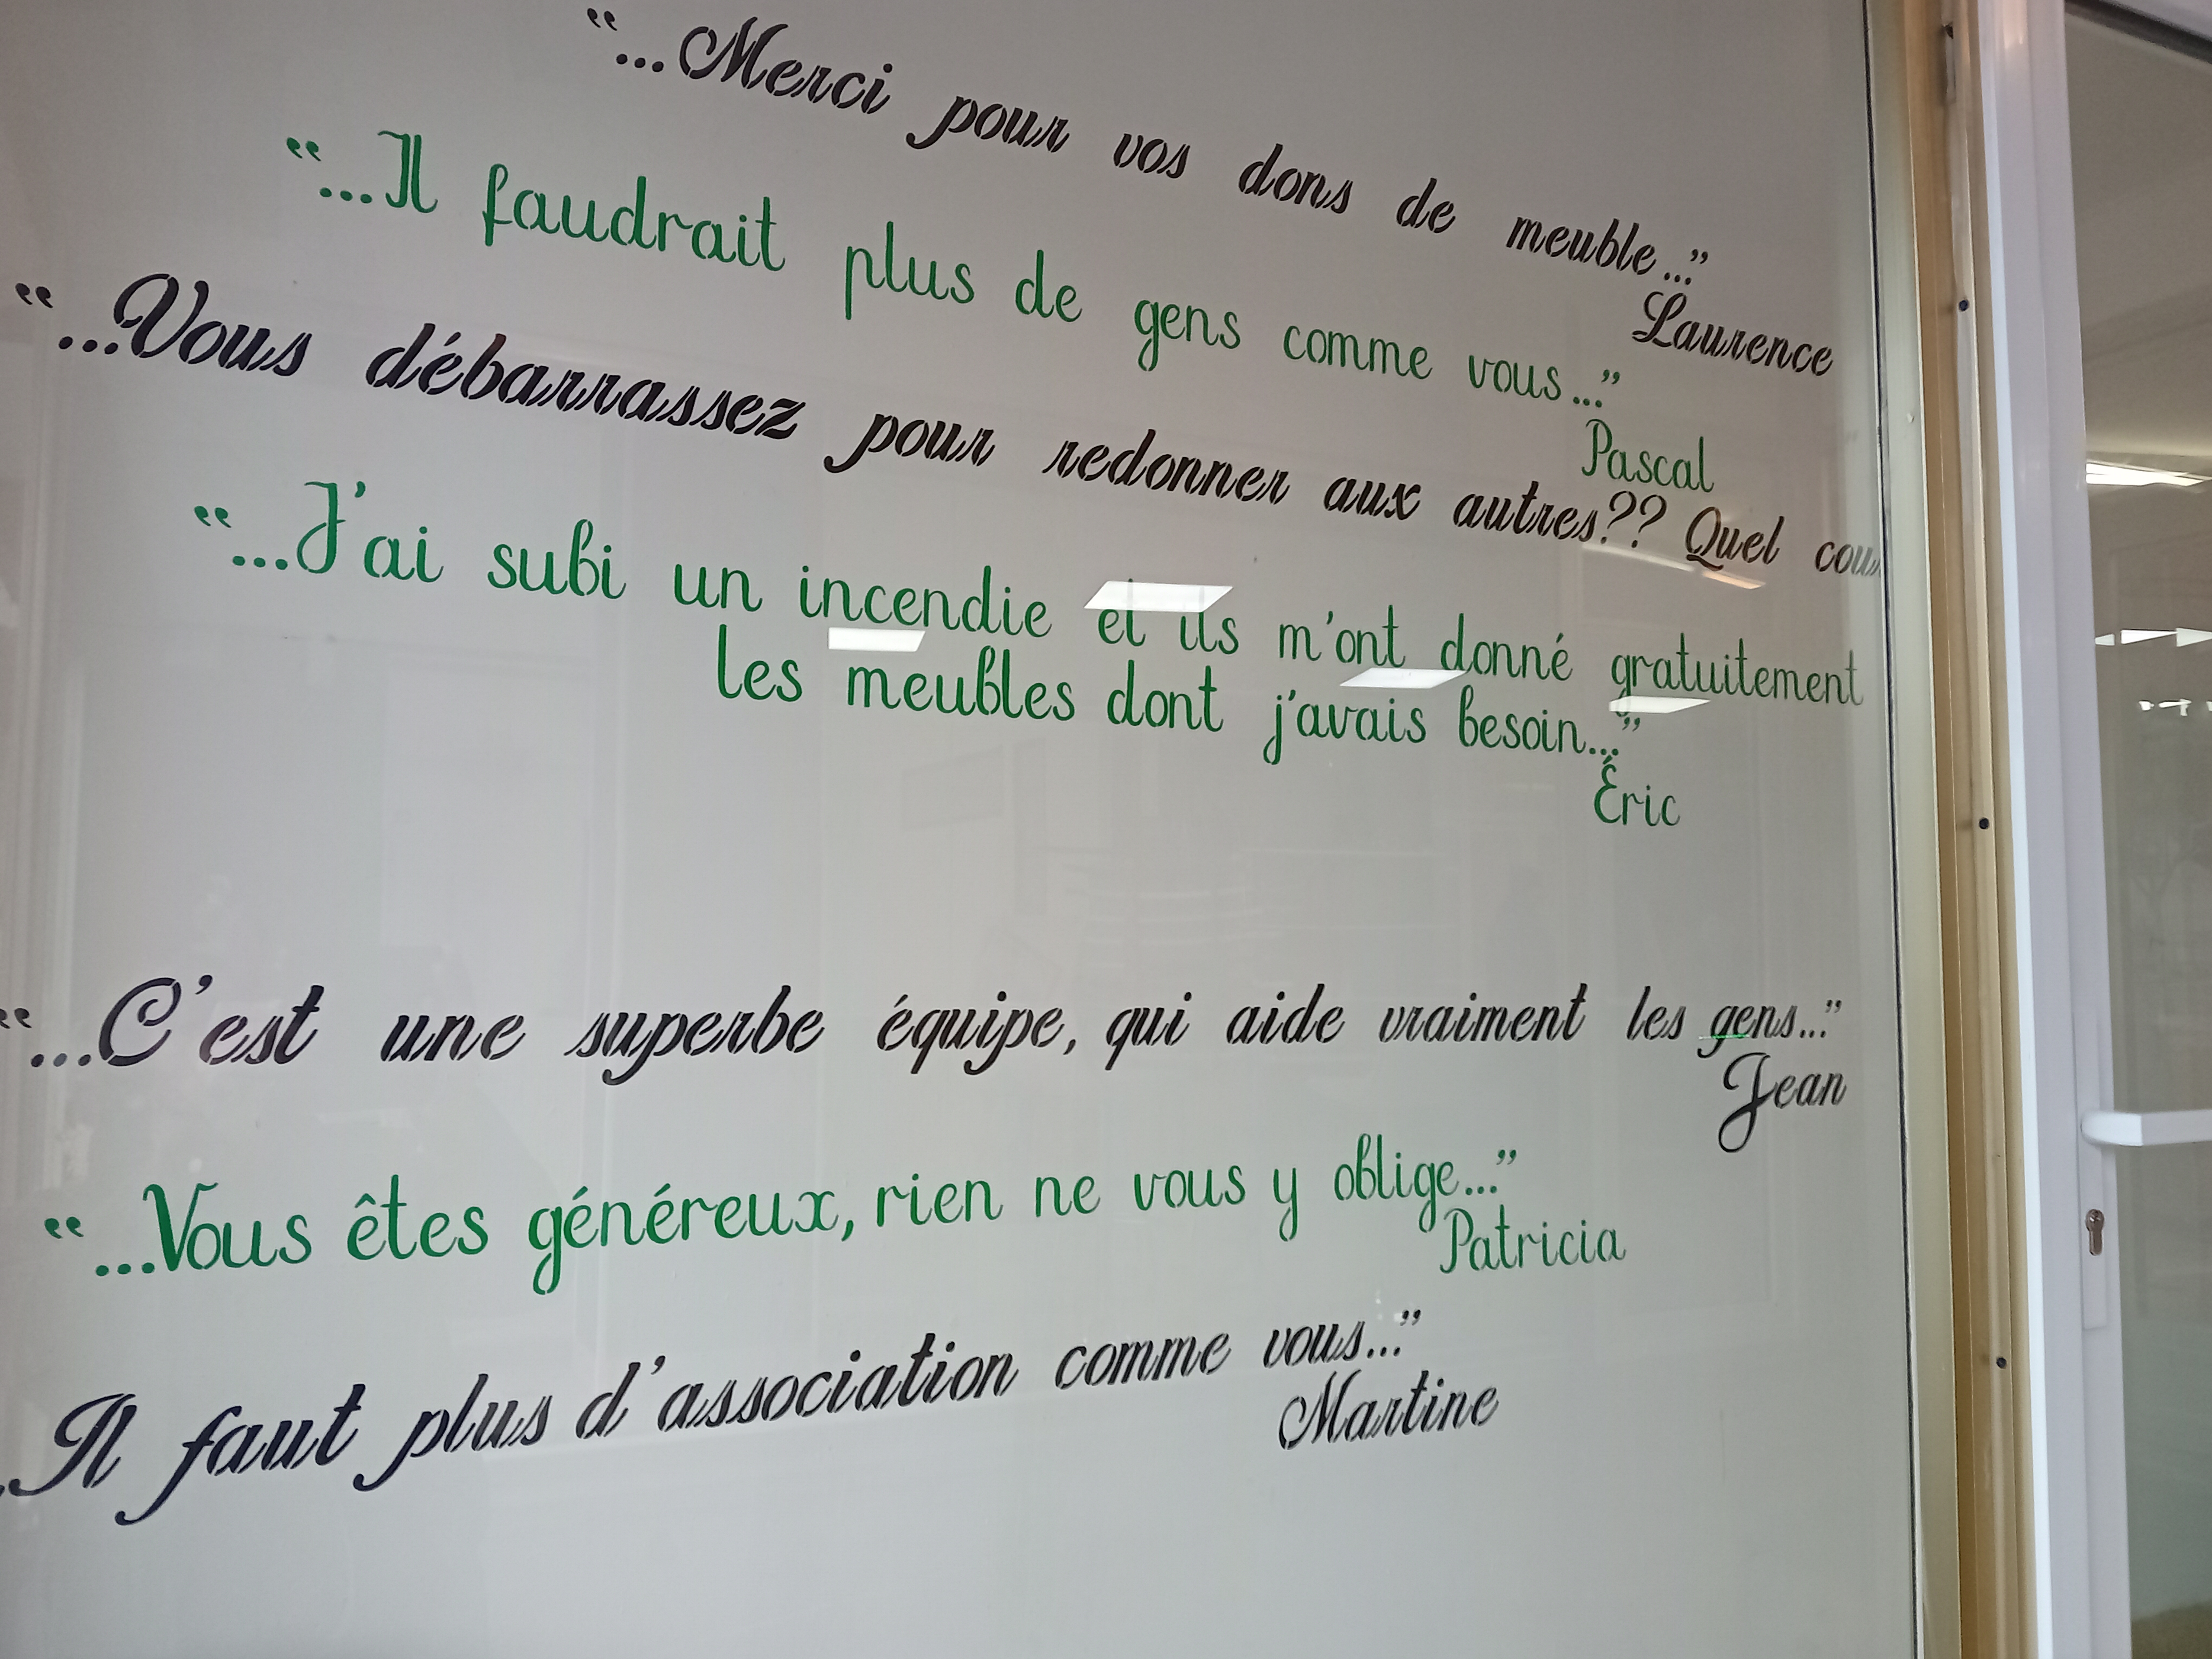 “...Merci pour vos dons de meuble...”
Laurence
“...Il faudrait plus de gens comme vous...”
Pascal
“...Vous débarrassez pour redonner aux autres?? Quel
“...J'ai subi un incendie et ils m'ont donné gratuitement
les meubles dont j'avais besoin...”
Éric
“...C'est une superbe équipe, qui aide vraiment les gens...”
Jean
“...Vous êtes généreux, rien ne vous y oblige...”
Patricia
.Il faut plus d'association comme vous...”
Martine